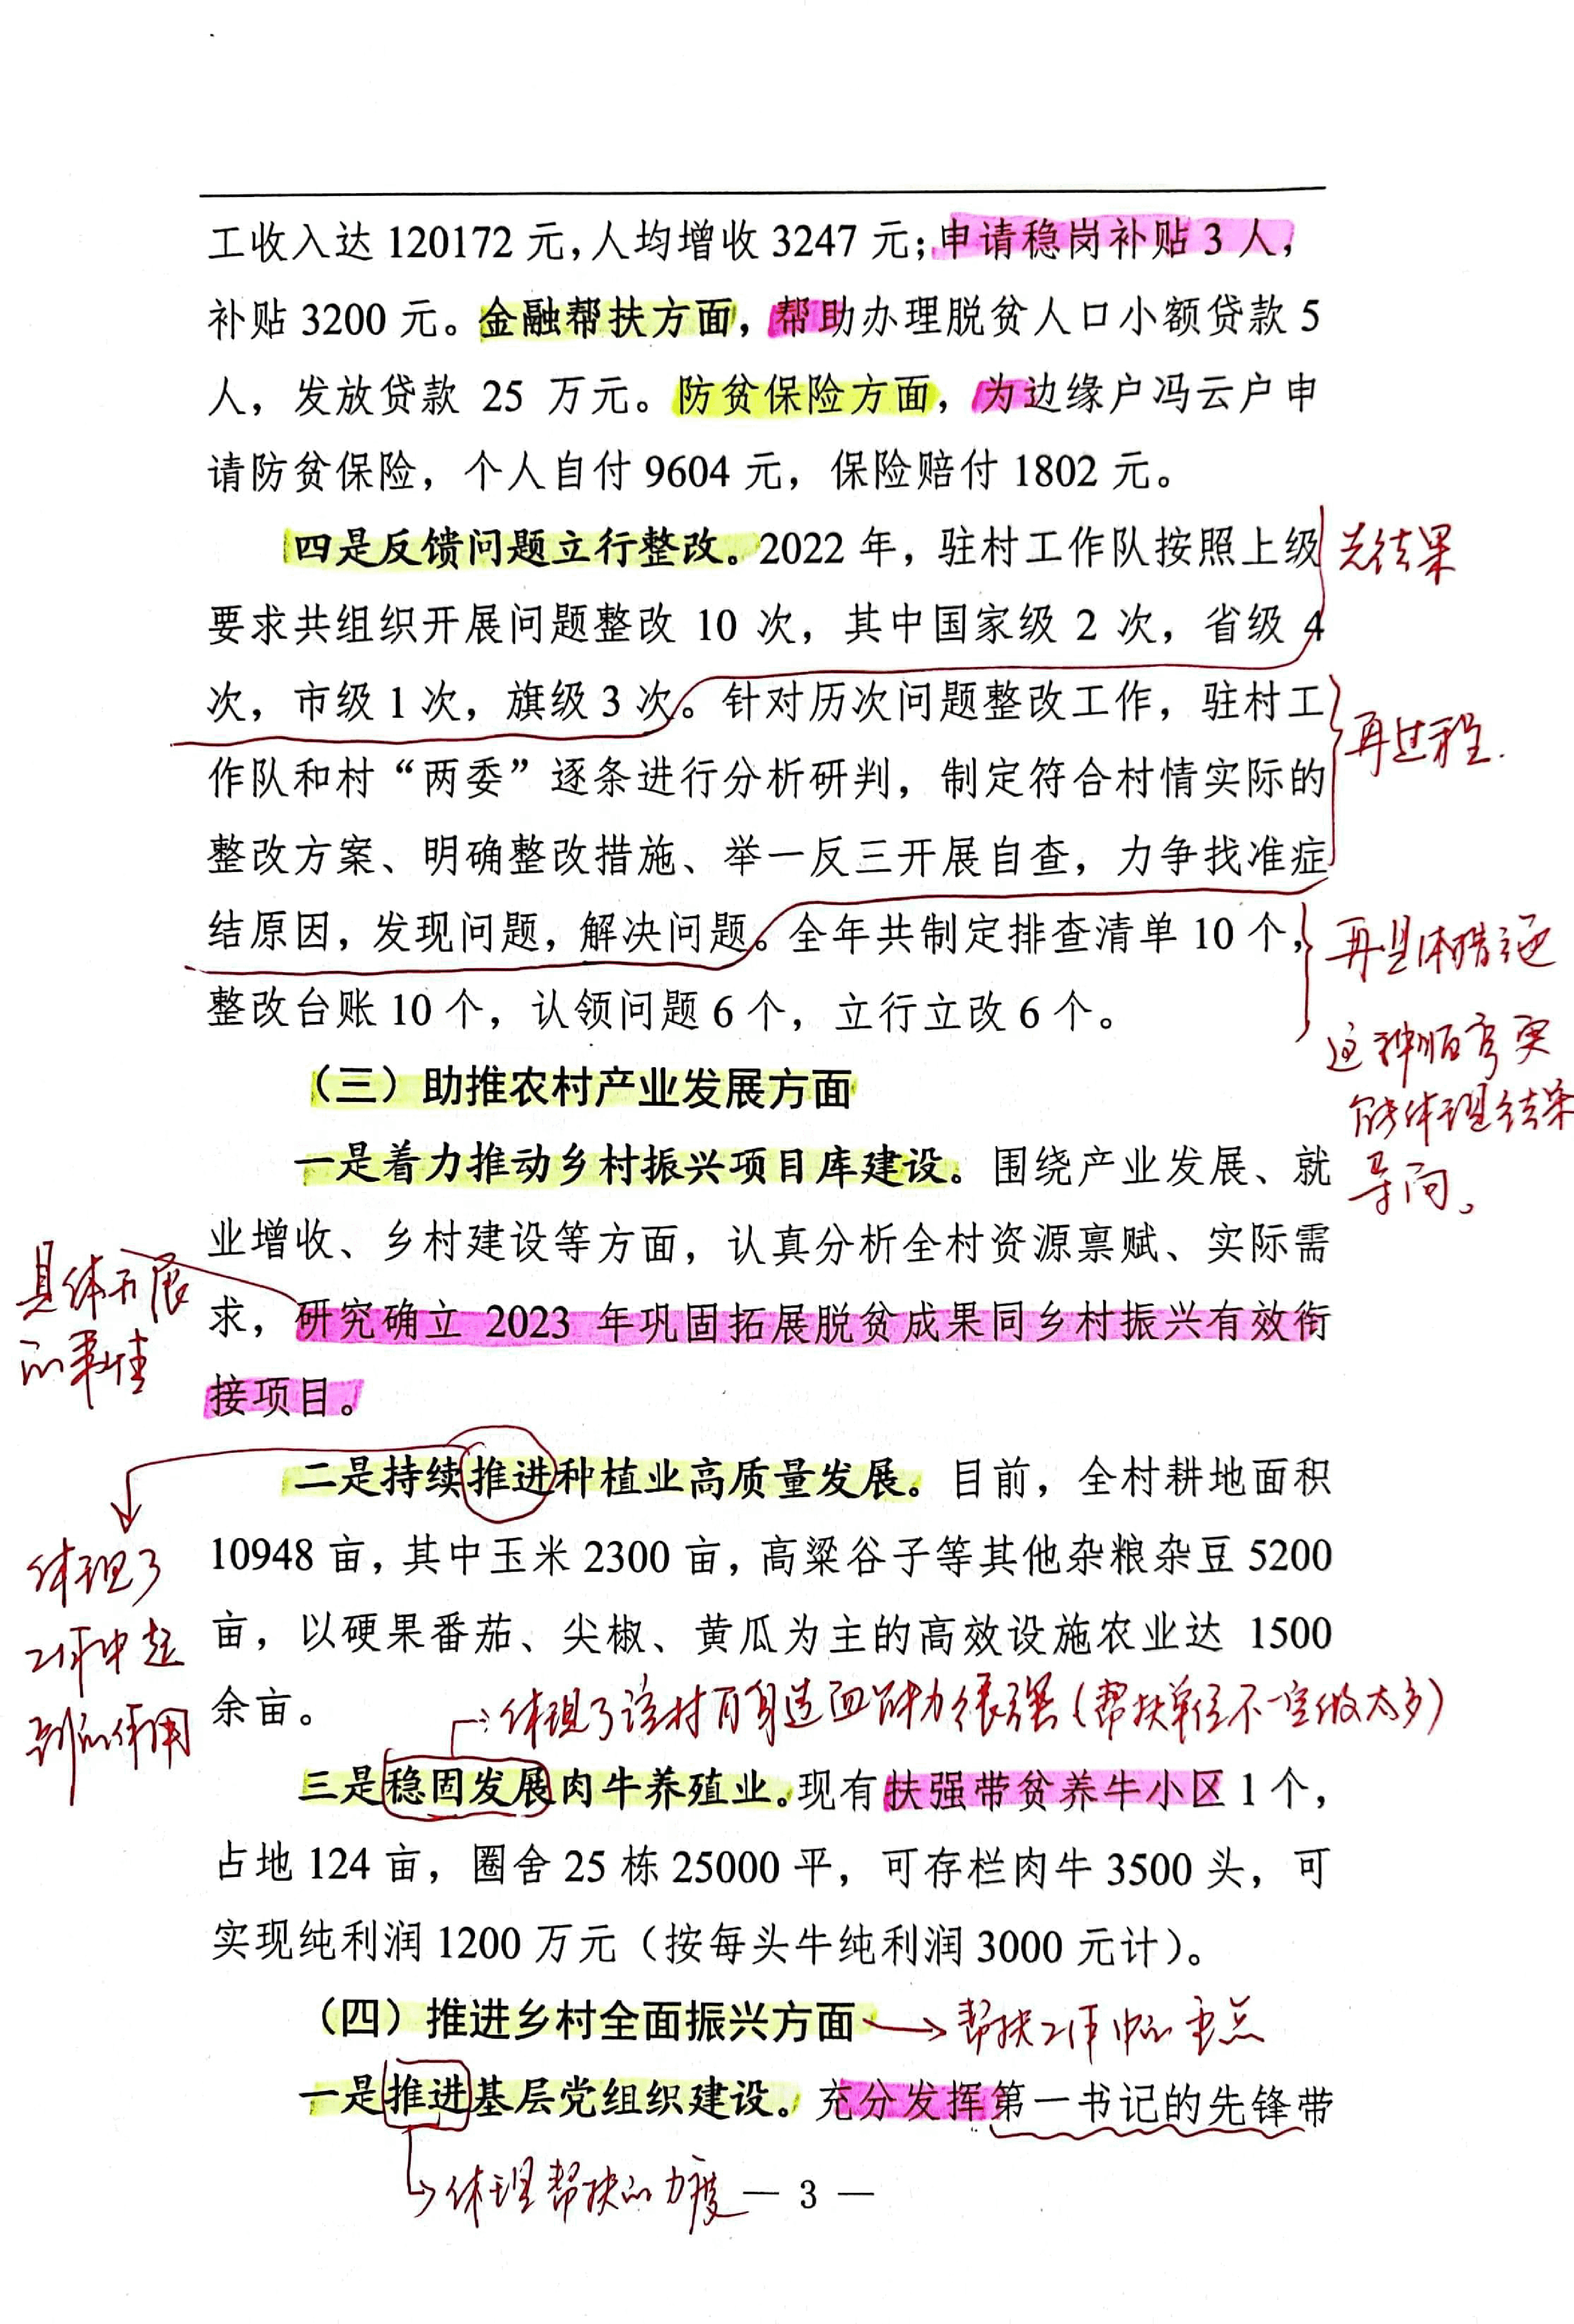 工收入达 120172 元，人均增收 3247 元；申请稳岗补贴 3 人，
补贴 3200 元。金融帮扶方面，帮助办理脱贫人口小额贷款 5
人，发放贷款 25 万元。防贫保险方面，为边缘户冯云户申
请防贫保险，个人自付 9604 元，保险赔付 1802 元。
四是反馈问题立行整改。2022 年，驻村工作队按照上级
先结果
要求共组织开展问题整改 10 次，其中国家级 2 次，省级 4
次，市级 1 次，旗级 3 次。针对历次问题整改工作，驻村工
再过程.
作队和村“两委”逐条进行分析研判，制定符合村情实际的
整改方案、明确整改措施、举一反三开展自查，力争找准症
结原因，发现问题，解决问题。全年共制定排查清单 10 个，
再具体措施
整改台账 10 个，认领问题 6 个，立行立改 6 个。
这种顺序更
能体现结果
导向。
（三）助推农村产业发展方面
一是着力推动乡村振兴项目库建设。围绕产业发展、就
业增收、乡村建设等方面，认真分析全村资源禀赋、实际需
具体开展
的事情
求，研究确立 2023 年巩固拓展脱贫成果同乡村振兴有效衔
接项目。
二是持续推进种植业高质量发展。目前，全村耕地面积
体现了
工作中起
到的作用
10948 亩，其中玉米 2300 亩，高粱谷子等其他杂粮杂豆 5200
亩，以硬果番茄、尖椒、黄瓜为主的高效设施农业达 1500
余亩。
体现了该村自身造血能力很强（帮扶单位不一定做太多）
三是稳固发展肉牛养殖业。现有扶强带贫养牛小区 1 个，
占地 124 亩，圈舍 25 栋 25000 平，可存栏肉牛 3500 头，可
实现纯利润 1200 万元（按每头牛纯利润 3000 元计）。
（四）推进乡村全面振兴方面
帮扶工作中的重点
一是推进基层党组织建设。充分发挥第一书记的先锋带
体现帮扶的力度
— 3 —